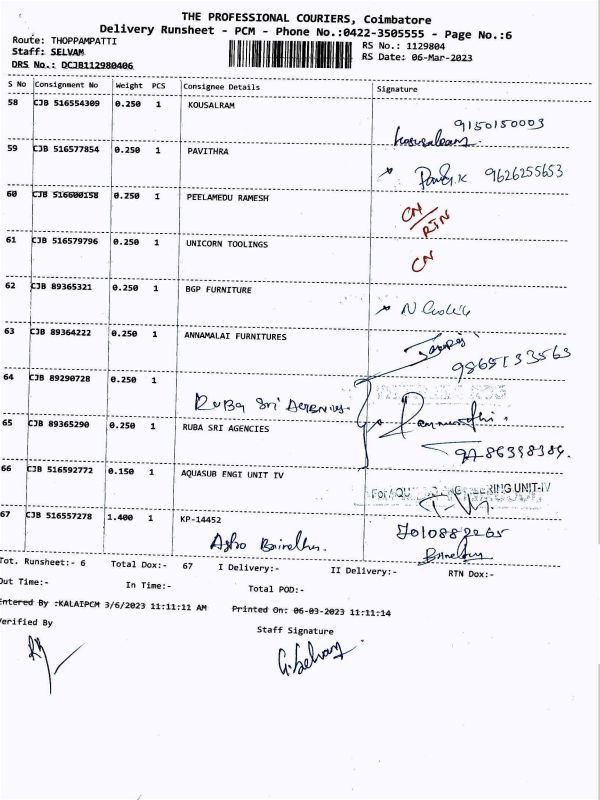 THE PROFESSIONAL COURIERS, Coimbatore
Delivery Runsheet - PCM - Phone No.:0422-3505555 - Page No.:6
Route: THOPPAMPATTI
RS No.: 1129804
Staff: SELVAM
RS Date: 06-Mar-2023
DRS No.: DCJB112980406
S No Consignment No Weight PCS Consignee Details Signature
58 CJB 516554309 0.250 1 KOUSALRAM
9150150003
59 CJB 516577854 0.250 1 PAVITHRA
9626255653
60 CJB 516600158 0.250 1 PEELAMEDU RAMESH
CN/RTN
61 CJB 516579796 0.250 1 UNICORN TOOLINGS
CN
62 CJB 89365321 0.250 1 BGP FURNITURE
63 CJB 89364222 0.250 1 ANNAMALAI FURNITURES
9865133563
64 CJB 89290728 0.250 1
Ruba Sri Agencies.
65 CJB 89365290 0.250 1 RUBA SRI AGENCIES
66 CJB 516592772 0.150 1 AQUASUB ENGI UNIT IV
For AQU RING UNIT-IV
67 CJB 516557278 1.400 1 KP-14452
Tot. Runsheet:- 6 Total Dox:- 67 I Delivery:- II Delivery:- RTN Dox:-
Out Time:- In Time:- Total POD:-
Entered By :KALAIPCM 3/6/2023 11:11:11 AM Printed On: 06-03-2023 11:11:14
Verified By
Staff Signature
G. Selvam